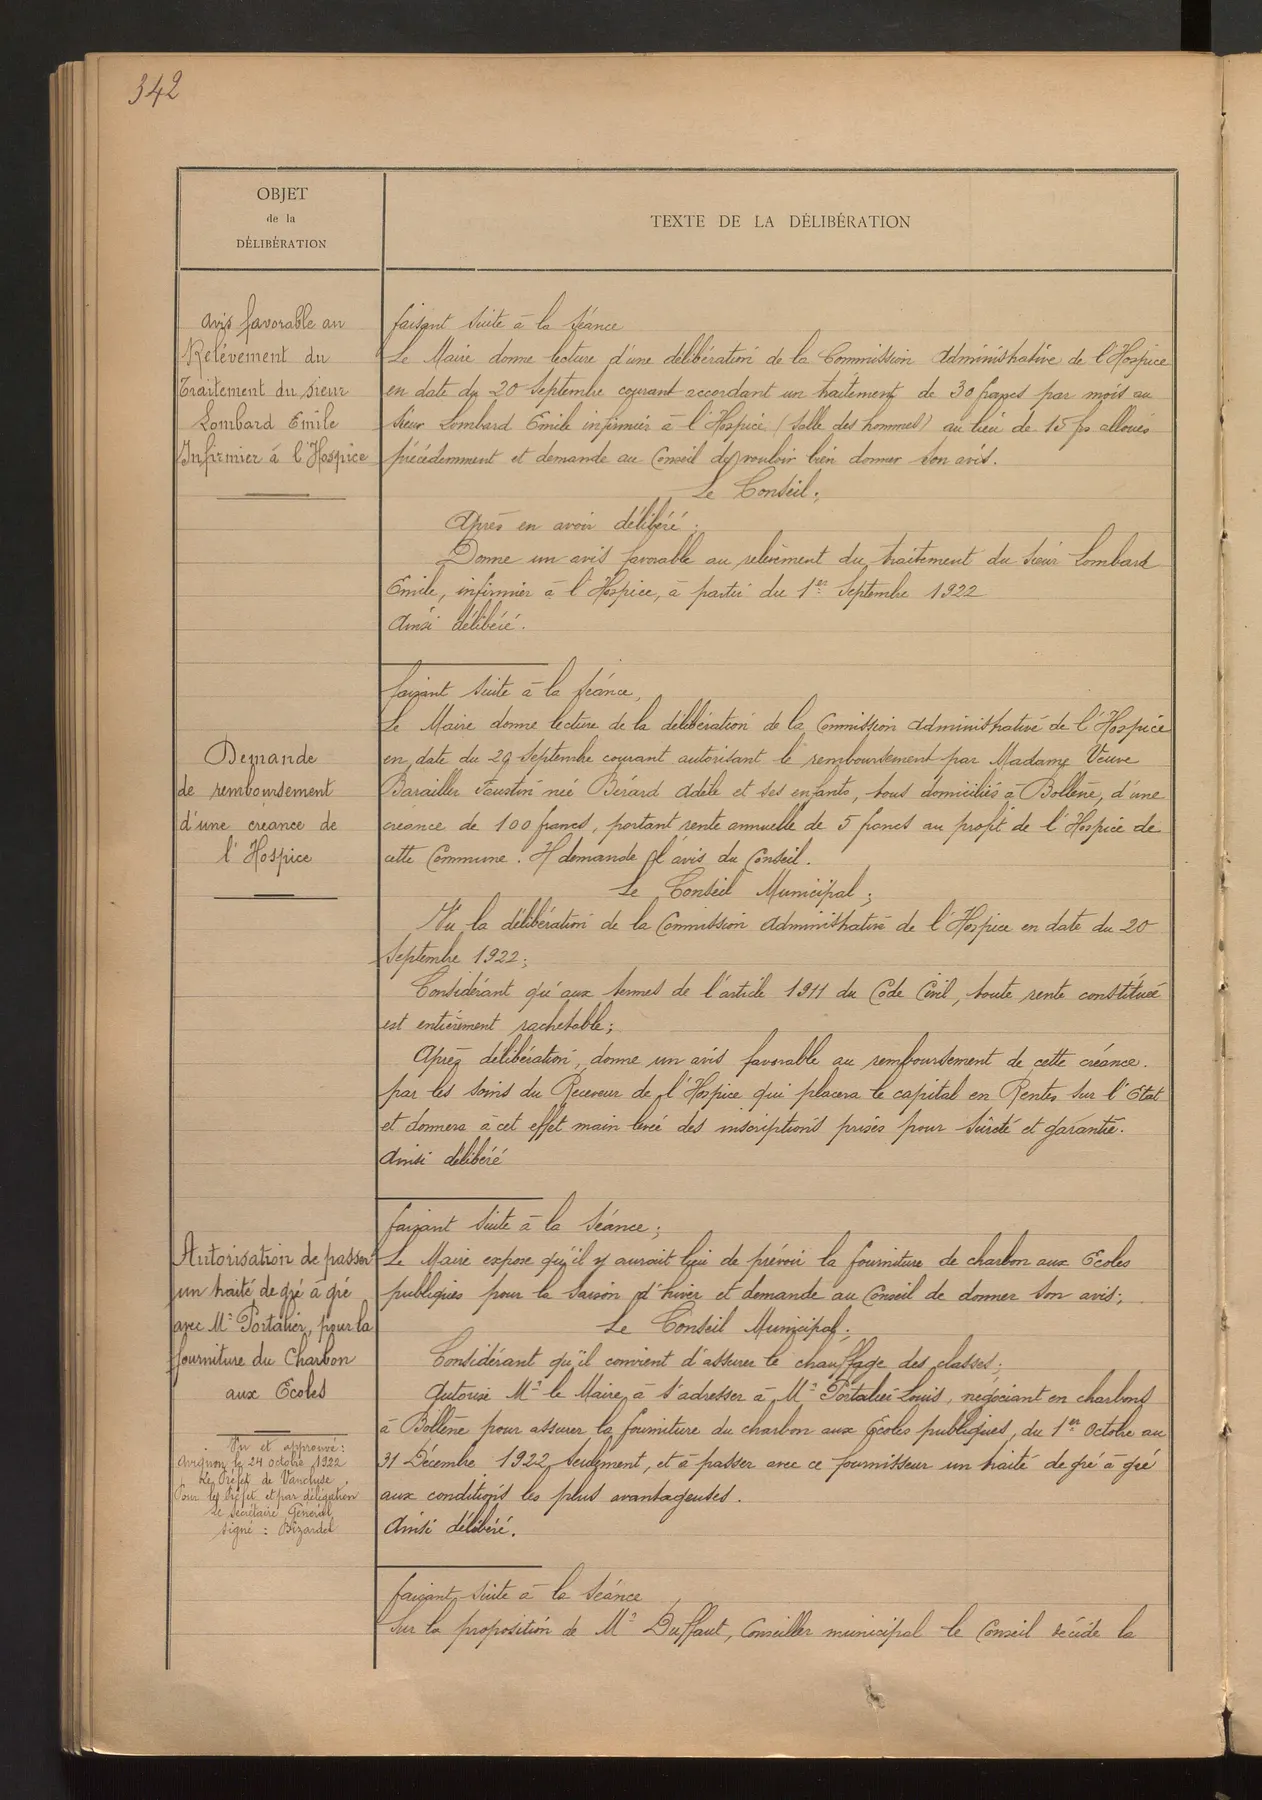 342
OBJET
de la
DÉLIBÉRATION
TEXTE DE LA DÉLIBÉRATION
Avis favorable au
Relèvement du
Traitement du sieur
Lombard Emile
Infirmier à l'Hospice
faisant suite à la séance
Le Maire donne lecture d'une délibération de la Commission Administrative de l'Hospice
en date du 20 Septembre courant accordant un traitement de 30 francs par mois au
sieur Lombard Emile infirmier à l'Hospice (Salle des hommes) au lieu de 15 frs alloués
précédemment et demande au Conseil de vouloir bien donner son avis.
Le Conseil;
Après en avoir délibéré:
Donne un avis favorable au relèvement du traitement du sieur Lombard
Emile, infirmier à l'Hospice, à partir du 1er Septembre 1922
Ainsi délibéré.
Demande
de remboursement
d'une créance de
l'Hospice
faisant suite à la séance,
Le Maire donne lecture de la délibération de la Commission Administrative de l'Hospice
en date du 29 Septembre courant autorisant le remboursement par Madame Veuve
Barailler Faustin née Bérard Adèle et ses enfants, tous domiciliés à Bollène, d'une
créance de 100 francs, portant rente annuelle de 5 francs au profit de l'Hospice de
cette Commune. Il demande l'avis du Conseil.
Le Conseil Municipal;
Vu la délibération de la Commission Administrative de l'Hospice en date du 20
Septembre 1922;
Considérant qu'aux termes de l'article 1911 du Code Civil, toute rente constituée
est entièrement rachetable;
Après délibération, donne un avis favorable au remboursement de cette créance.
par les soins du Receveur de l'Hospice qui placera le capital en Rentes sur l'Etat
et donnera à cet effet main levée des inscriptions prises pour sûreté et garantie.
Ainsi délibéré
Autorisation de passer
un traité de gré à gré
avec Mr Portalier, pour la
fourniture du Charbon
aux Ecoles
Vu et approuvé:
Avignon, le 24 octobre 1922
Le Préfet de Vaucluse
Pour le Préfet et par délégation
Le Secrétaire Général
signé: Bizardel
faisant suite à la séance;
Le Maire expose qu'il y aurait lieu de prévoir la fourniture de charbon aux Ecoles
publiques pour la saison d'hiver et demande au Conseil de donner son avis;
Le Conseil Municipal;
Considérant qu'il convient d'assurer le chauffage des classes;
Autorise Mr le Maire à s'adresser à Mr Portalier Louis, négociant en charbons
à Bollène pour assurer la fourniture du charbon aux Ecoles publiques, du 1er Octobre au
31 Décembre 1922 seulement, et à passer avec ce fournisseur un traité de gré à gré
aux conditions les plus avantageuses.
Ainsi délibéré.
faisant suite à la séance
Sur la proposition de Mr Duffaut, Conseiller municipal le Conseil décide la